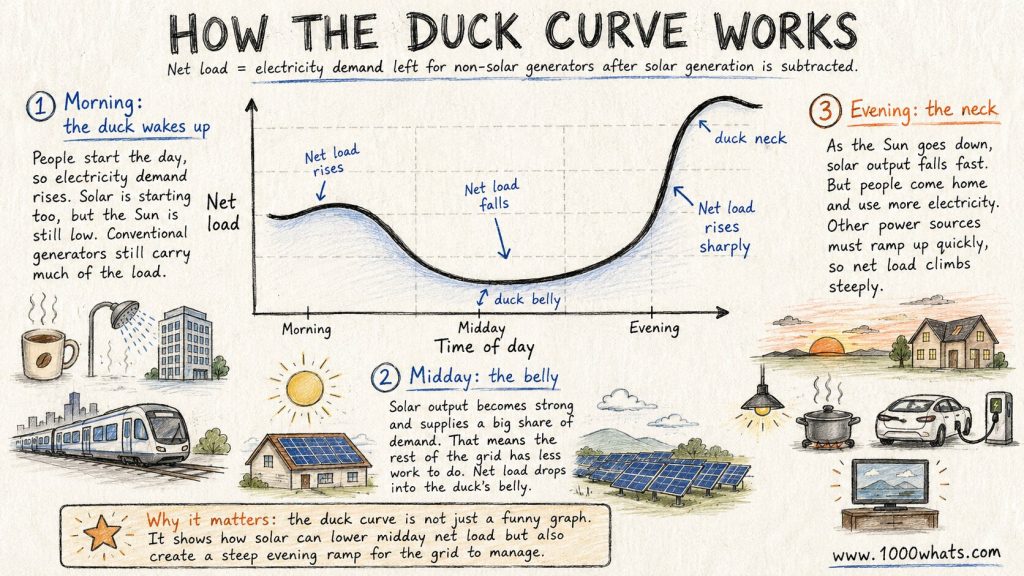 HOW THE DUCK CURVE WORKS
Net load = electricity demand left for non-solar generators after solar generation is subtracted.
1 Morning:
the duck wakes up
People start the day,
so electricity demand
rises. Solar is starting
too, but the Sun is
still low. Conventional
generators still carry
much of the load.
Net
load
Net load
rises
Net load
falls
duck belly
duck neck
Net load
rises
sharply
Morning
Midday
Evening
Time of day
2 Midday: the belly
Solar output becomes strong
and supplies a big share of
demand. That means the
rest of the grid has less
work to do. Net load drops
into the duck's belly.
3 Evening: the neck
As the Sun goes down,
solar output falls fast.
But people come home
and use more electricity.
Other power sources
must ramp up quickly,
so net load climbs
steeply.
Why it matters: the duck curve is not just a funny graph.
It shows how solar can lower midday net load but also
create a steep evening ramp for the grid to manage.
www.1000whats.com